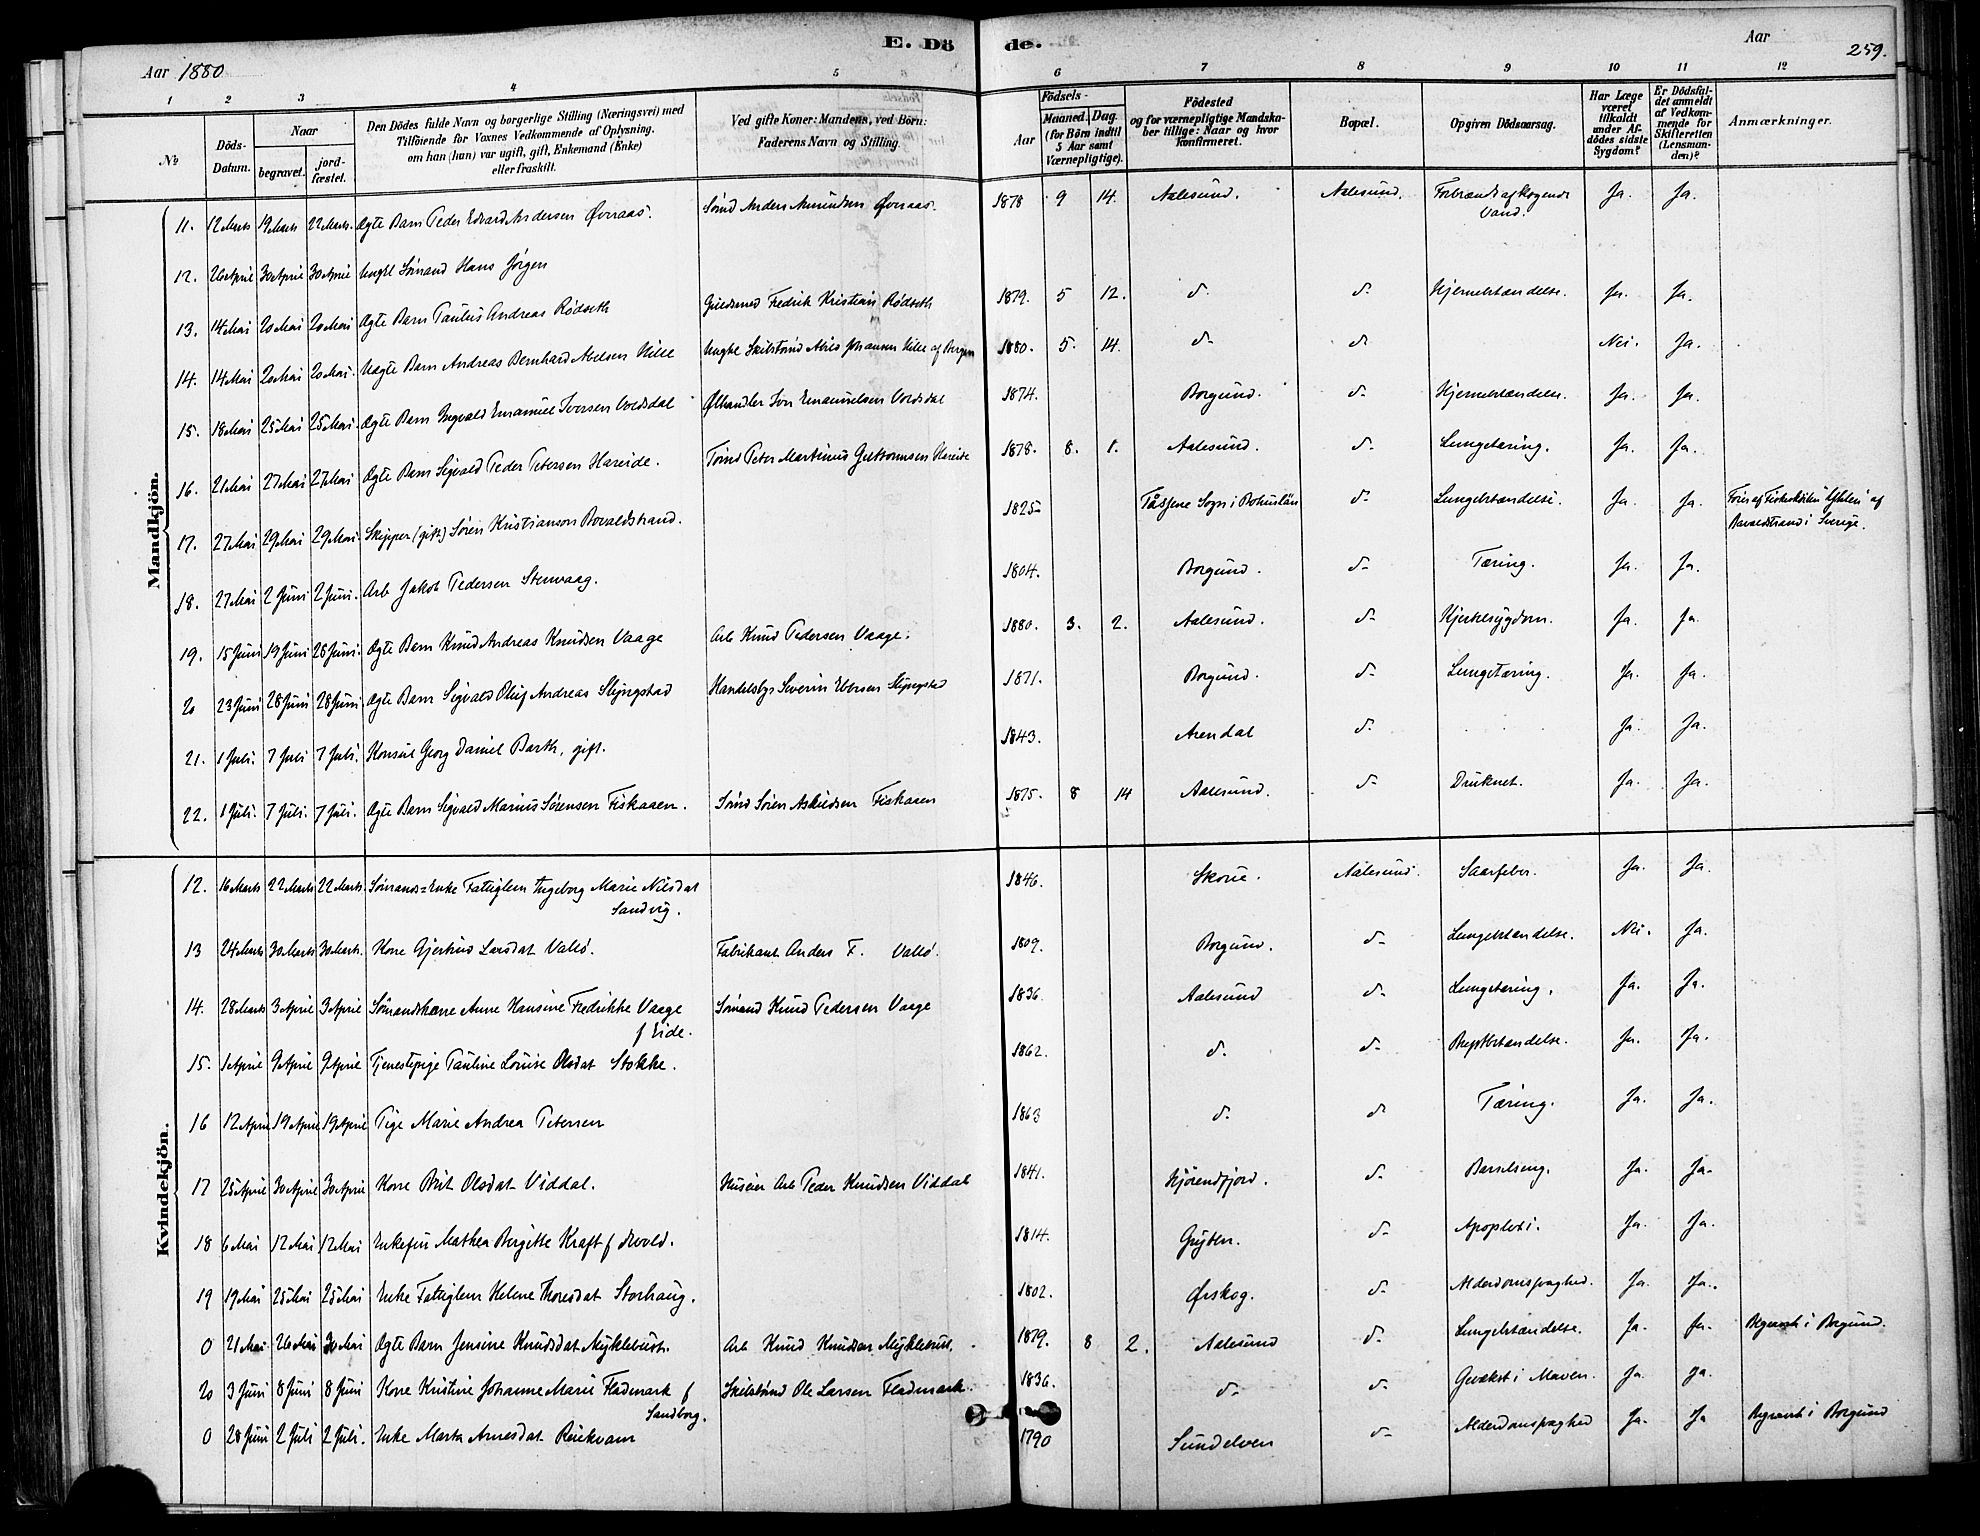 E. Dö de.
Aar 1880
Aar
259.
1 2 3 4 5 6 7 8 9 10 11 12
№
Döds-Datum.
Naar
begravet.
jord-fæstet.
Den Dödes fulde Navn og borgerlige Stilling (Næringsvei) med
Tilföiende for Voxnes Vedkommende af Oplysning.
om han (hun) var ugift, gift, Enkemand (Enke)
eller fraskilt.
Ved gifte Koner: Mandens, ved Börn:
Faderens Navn og Stilling.
Födsels-
Aar
Maaned. Dag.
(for Börn indtil
5 Aar samt
Værnepligtige).
Födested
og for værnepligtige Mandska-
ber tillige: Naar og hvor
konfirmeret.
Bopæl.
Opgiven Dödsaarsag.
Har Læge
været
tilkaldt
under Af-
dödes sidste
Sygdom?
Er Dödsfal-
det anmeldt
af Vedkom-
mende for
Skifteretten
(Lensman-
den)?
Anmærkninger.
Mandkjön.
11. 12 Marts 19 Marts 22 Marts. Ægte Barn Peder Edvard Andersen Øvraas. Sømd Anders Amundsen Øvraas. 1878 9 14. Aalesund. Aalesund. Forbrændt af kogende Vand. Ja. Ja.
12. 26 April 30 April 30 April Hans Jörgen
13. 14 Mai 20 Mai 20 Mai Ægte Barn Paulus Andreas Rødseth Fredrik Kristian Rødseth 1879. 5 12. d. d. Hjernebetændelse. Ja. Ja.
14. 14 Mai 20 Mai 20 Mai. Uægte Barn Andreas Bernhard Abelsen Hille Johansen Hille af Bergen 1880. 5. 14. d. d. Nei. Ja.
15. 18 Mai 25 Mai 25 Mai. Ægte Barn Ingvald Emanuel Iversen Voldsdal Ølhandler Iver Emanuelsen Voldsdal 1874. Borgund. d. Hjernebetændelse. Ja. Ja.
16. 21 Mai 27 Mai 27 Mai Ægte Barn Sigvald Peder Petersen Hareide. Peter Martinus Guttormsen Hareide 1878. 8. 1. Aalesund. d. Lungetæring. Ja. Ja.
17. 27 Mai 29 Mai 29 Mai. Skipper (gift) Sören Kristianson Bovaldstrand. 1825 Sogn i Bohuslän d. Lungebetændelse. Ja. Ja. af i Sverige.
18. 27 Mai 2 Juni 2 Juni. Arb Jakob Pedersen Stenvaag. 1804. Borgund. d. Tæring. Ja. Ja.
19. 15 Juni 19 Juni 28 Juni. Ægte Barn Knud Andreas Knudsen Vaage Arb Knud Pedersen Vaage. 1880. 3. 2. Aalesund. d. Hjertesygdom. Ja. Ja.
20 23 Juni 28 Juni 28 Juni. Ægte Barn Sigvald Oluf Andreas Slyngstad Handelsby Severin Ebersen Slyngstad 1871. Borgund. d. Lungetæring. Ja. Ja.
21. 1 Juli. 7 Juli 7 Juli. Konsul Georg Daniel Barth, gift. 1843. Arendal d. Ja. Ja.
22. 1 Juli. 7 Juli. 7 Juli. Ægte Barn Sigvald Marius Sørensen Fiskaaen. Sømd Sören Fiskaaen 1875. 8 14 Aalesund. d. Druknet. Ja. Ja.
Kvindekjön.
12. 16 Marts 22 Marts 22 Marts. Sømands-Enke Fattiglem Ingeborg Marie Nilsdat 1846. Aalesund. Ja. Ja.
Sandvig.
13 24 Marts 30 Marts 30 Marts. Kone Gjertrud Larsdat Vallø. Fabrikant Anders F. Vallø. 1809. Borgund. d. Lungebetændelse. Nei. Ja.
14. 28 Marts 3 April 3 April Sømandskone Anne Hansine Fredrikke Vaage Sømand Knud Pedersen Vaage 1836. Aalesund d. Lungetæring. Ja. Ja.
f Eide.
15. 1 April 9 April 9 April Tjenestepige Pauline Louise Olsdat Stokke. 1862. d. d. Brystbetændelse. Ja. Ja.
16 12 April 19 April 19 April Pige Marie Andrea Petersen 1863 d. d. Tæring. Ja. Ja.
17 25 April 30 April 30 April Kone Brit Olsdat Viddal. Huseier Arb Peder Knudsen Viddal 1841. Hjörendfjord. d. Barselseng. Ja. Ja.
18 6 Mai 12 Mai 12 Mai Enkefru Mathea Birgitte Kraft f 1814. Grytten. d. Apoplexi. Ja. Ja.
19 19 Mai 25 Mai 25 Mai Enke Fattiglem Helene Thoresdat Storhaug. 1802. Ørskog. d. Alderdomssvaghed. Ja. Ja.
0 21 Mai 26 Mai 30 Mai Ægte Barn Jensine Knudsdat Myklebust. Arb Knud Knudsen Myklebust. 1879. 8 2. Aalesund d. Lungebetændelse. Ja. Ja. Begravet i Borgund.
20 3 Juni 8 Juni 8 Juni Kone Kristine Johanne Marie Fladmark f Ole Larsen Fladmark. 1836. d. d. Gevækst i Maven. Ja. Ja.
Sandborg.
0 28 Juni 2 Juli 2 Juli. Enke Marta Arnesdat Reiekvam 1790 Sundelven d. Alderdomssvaghed Ja. Ja Begravet i Borgund